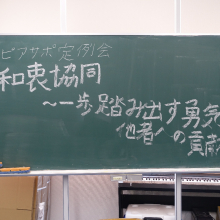 ピアサポ定例会
和衷協同
～一歩踏み出す勇気
他者への貢献